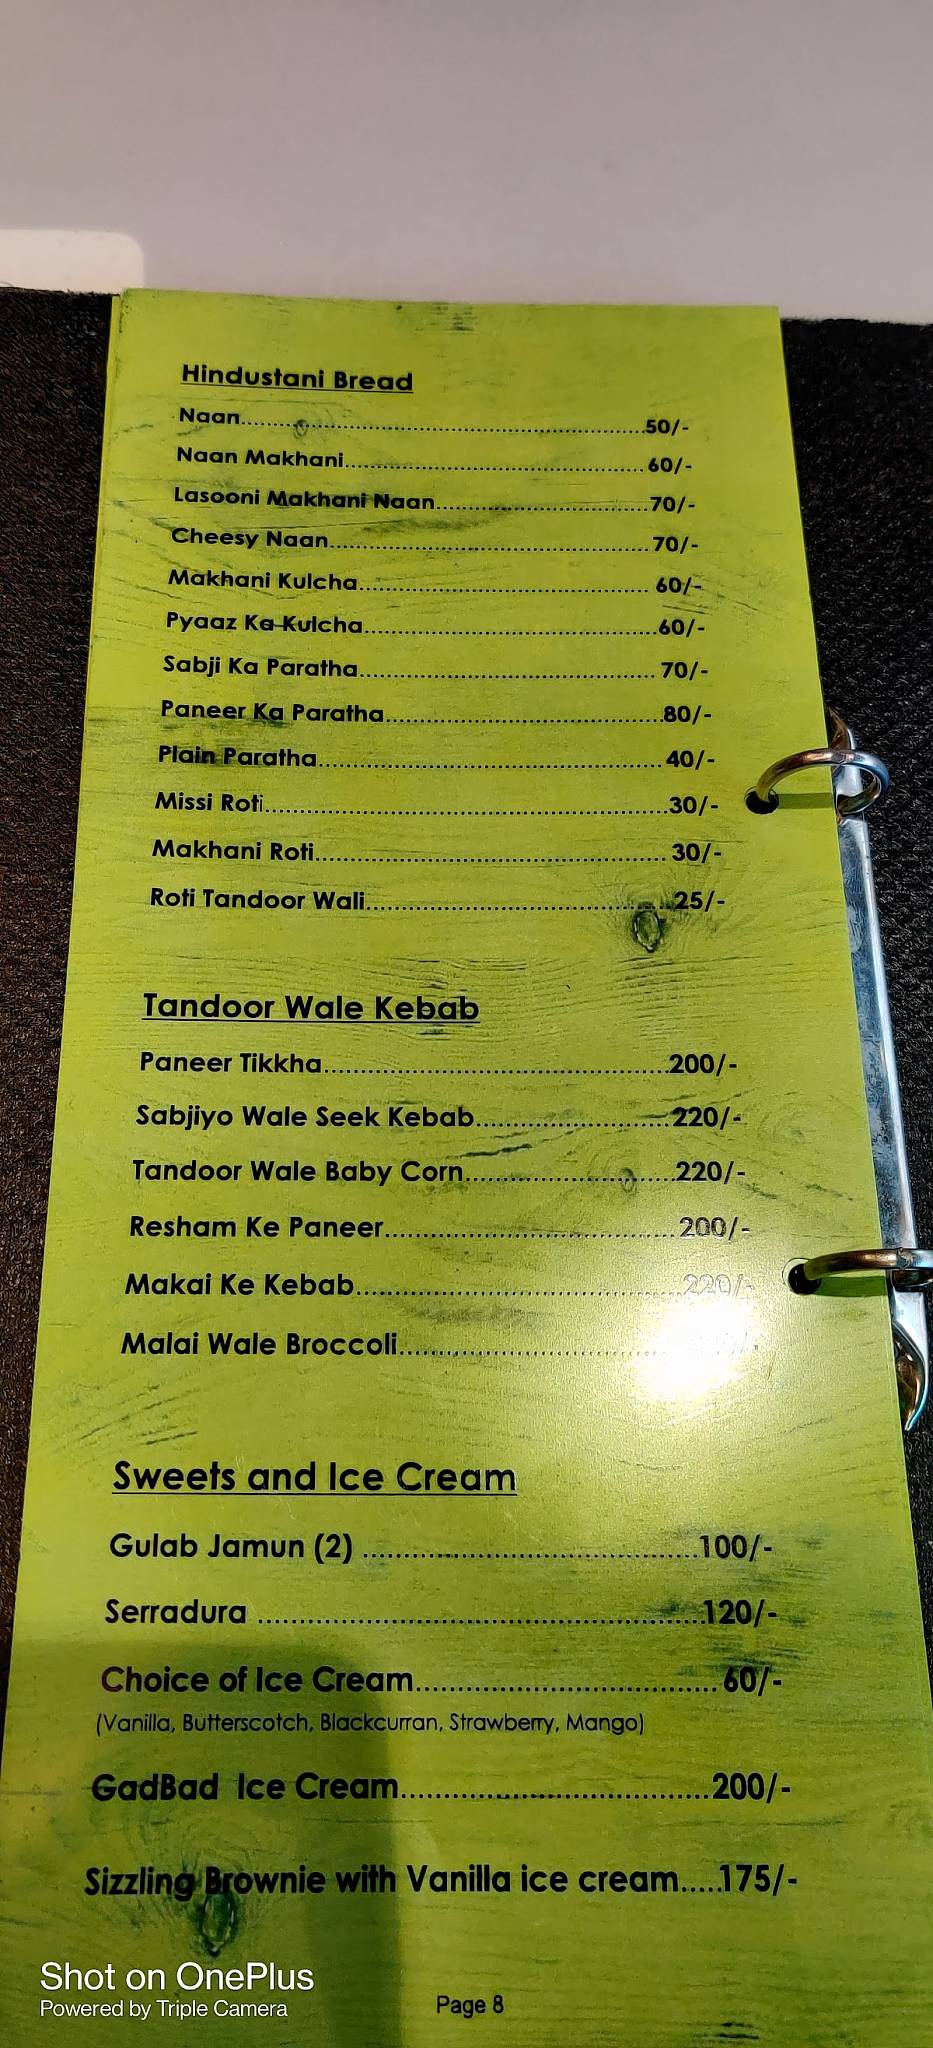 Hindustani Bread
Naan..........50/-
Naan Makhani..........60/-
Lasooni Makhani Naan..........70/-
Cheesy Naan..........70/-
Makhani Kulcha..........60/-
Pyaaz Ka Kulcha..........60/-
Sabji Ka Paratha..........70/-
Paneer Ka Paratha..........80/-
Plain Paratha..........40/-
Missi Roti..........30/-
Makhani Roti..........30/-
Roti Tandoor Wali..........25/-
Tandoor Wale Kebab
Paneer Tikkha..........200/-
Sabjiyo Wale Seek Kebab..........220/-
Tandoor Wale Baby Corn..........220/-
Resham Ke Paneer..........200/-
Makai Ke Kebab..........220/-
Malai Wale Broccoli..........
Sweets and Ice Cream
Gulab Jamun (2) ..........100/-
Serradura ..........120/-
Choice of Ice Cream..........60/-
(Vanilla, Butterscotch, Blackcurran, Strawberry, Mango)
GadBad Ice Cream..........200/-
Sizzling Brownie with Vanilla ice cream.....175/-
Shot on OnePlus
Powered by Triple Camera
Page 8